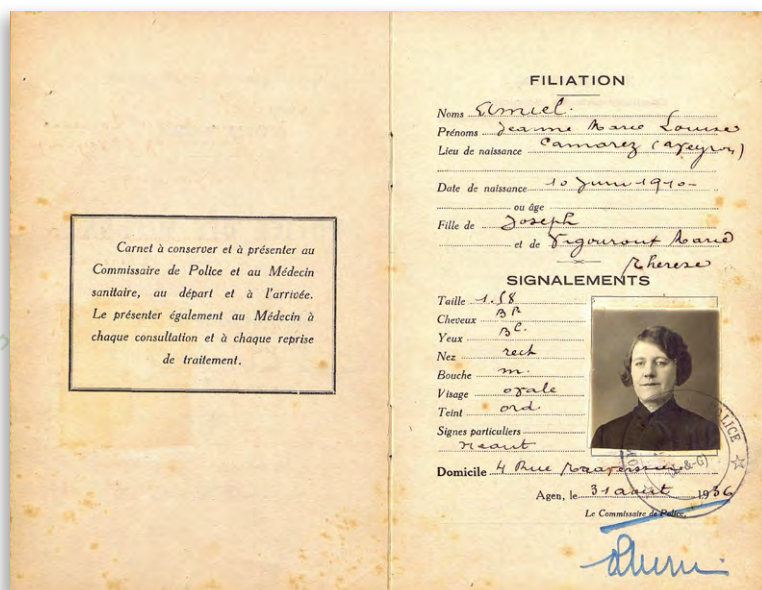 Carnet à conserver et à présenter au
Commissaire de Police et au Médecin
sanitaire, au départ et à l'arrivée.
Le présenter également au Médecin à
chaque consultation et à chaque reprise
de traitement.
FILIATION
Noms Amiel.
Prénoms Jeanne Marie Louise
Lieu de naissance Camarez (Aveyron)
Date de naissance 10 Juin 1910
ou âge
Fille de Joseph
et de Vigouroux Marie
Therese
SIGNALEMENTS
Taille 1.58
Cheveux
Yeux
Nez rect
Bouche m.
Visage ovale
Teint ord.
Signes particuliers
neant
Domicile 4 Rue
Agen, le 31 aout 1936
Le Commissaire de Police,
POLICE